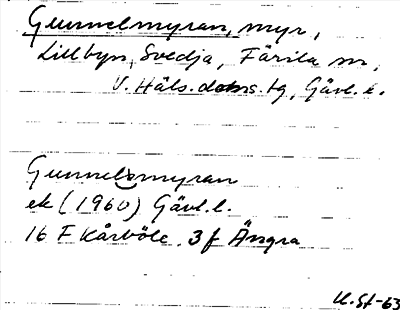 Gunnelmyran, myr,
Lillbyn, Svedja, Färila sn,
V. Häls. doms. tg, Gävl. l.
Gunnelsmyran
ek (1960) Gävl. l.
16 F Kårböle 3f Ängra
U. St-63